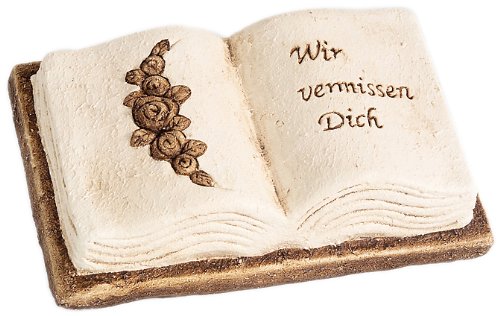 Wir
vermissen
Dich